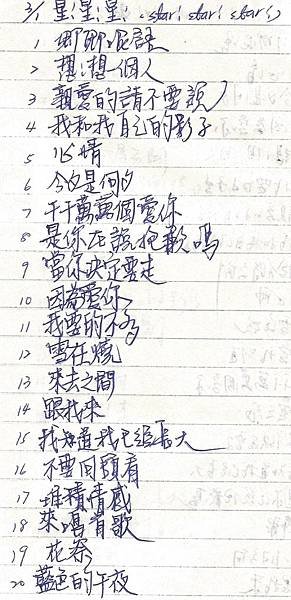 3/1 星!星!星! (star! star! star!)
1 卿卿昵語
2 想!想一個人
3 親愛的請不要說
4 我和我自己的影子
5 心情
6 今夕是何夕
7 千千萬萬個愛你
8 是你在說抱歉嗎
9 當你決定要走
10 因為愛你
11 我要的不多
12 雪在燒
13 來去之間
14 跟我來
15 我知道我已經長大
16 不要回頭看
17 堆積情感
18 來唱首歌
19 花祭
20 藍色的午夜